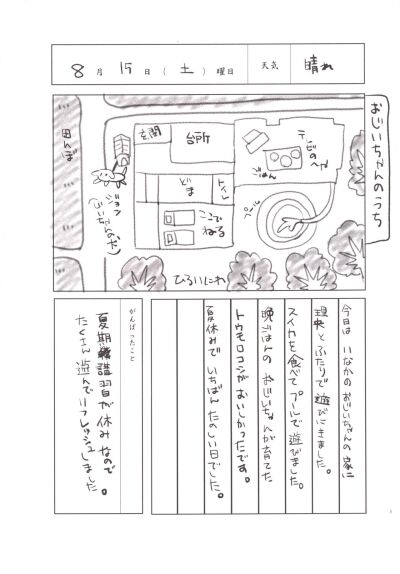 8月15日(土)曜日 天気 晴れ
おじいちゃんのうち
田んぼ
玄関
台所
テレビのへや
ごはん
どま
トイレ
ジョン
(じいちゃんの犬)
ここで
ねる
プール
ひろいにわ
今日は いなかの おじいちゃんの 家に
理央とふたりで 遊びにきました。
スイカを食べて プールで 遊びました。
晩ごはんの おじいちゃんが育てた
トウモロコシがおいしかったです。
夏休みで いちばん たのしい日でした。
がんばったこと
夏期講習が休みなので
たくさん遊んでリフレッシュしました。